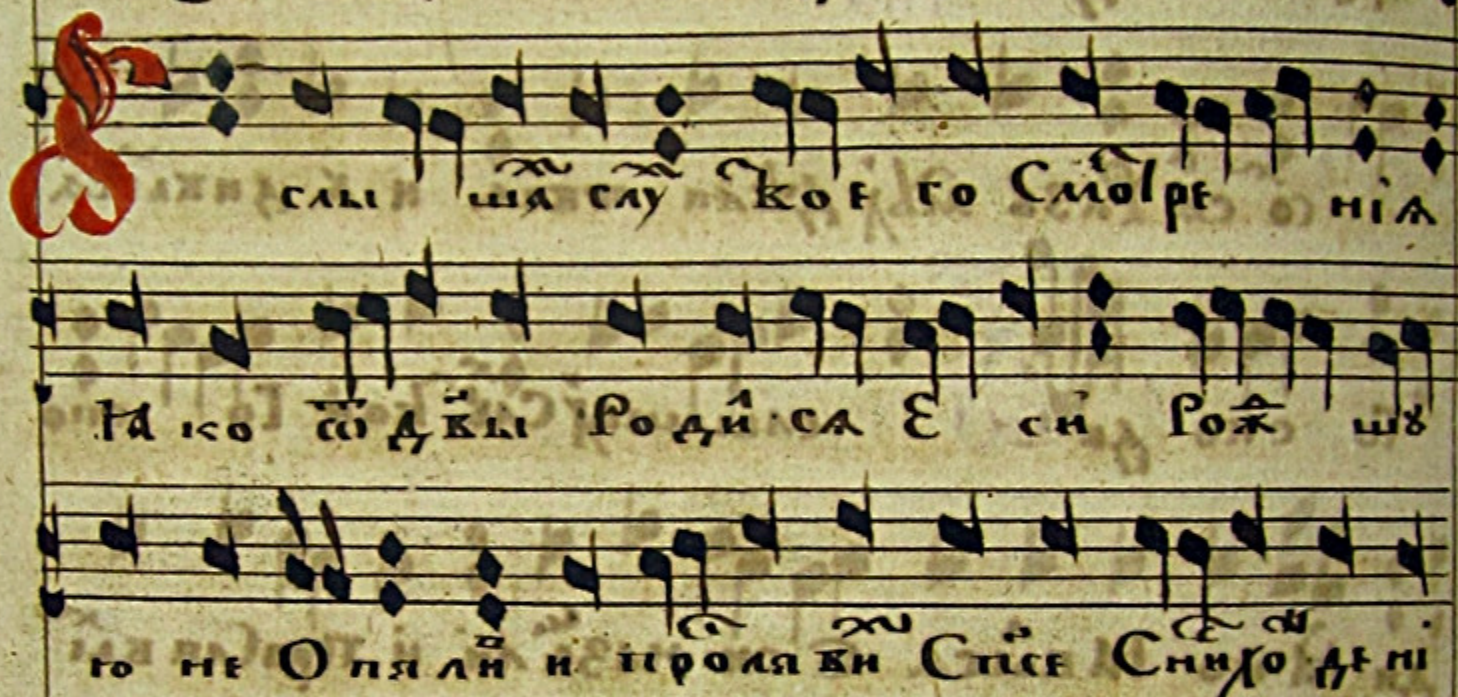 ѸслышА слѹ кое го Смотре нїѧ
Ꙗко ѿ дв҃ы Роди сѧ Є си Рож шꙋ
ю не Опали и проѧви Сп҃се Снихо де нї